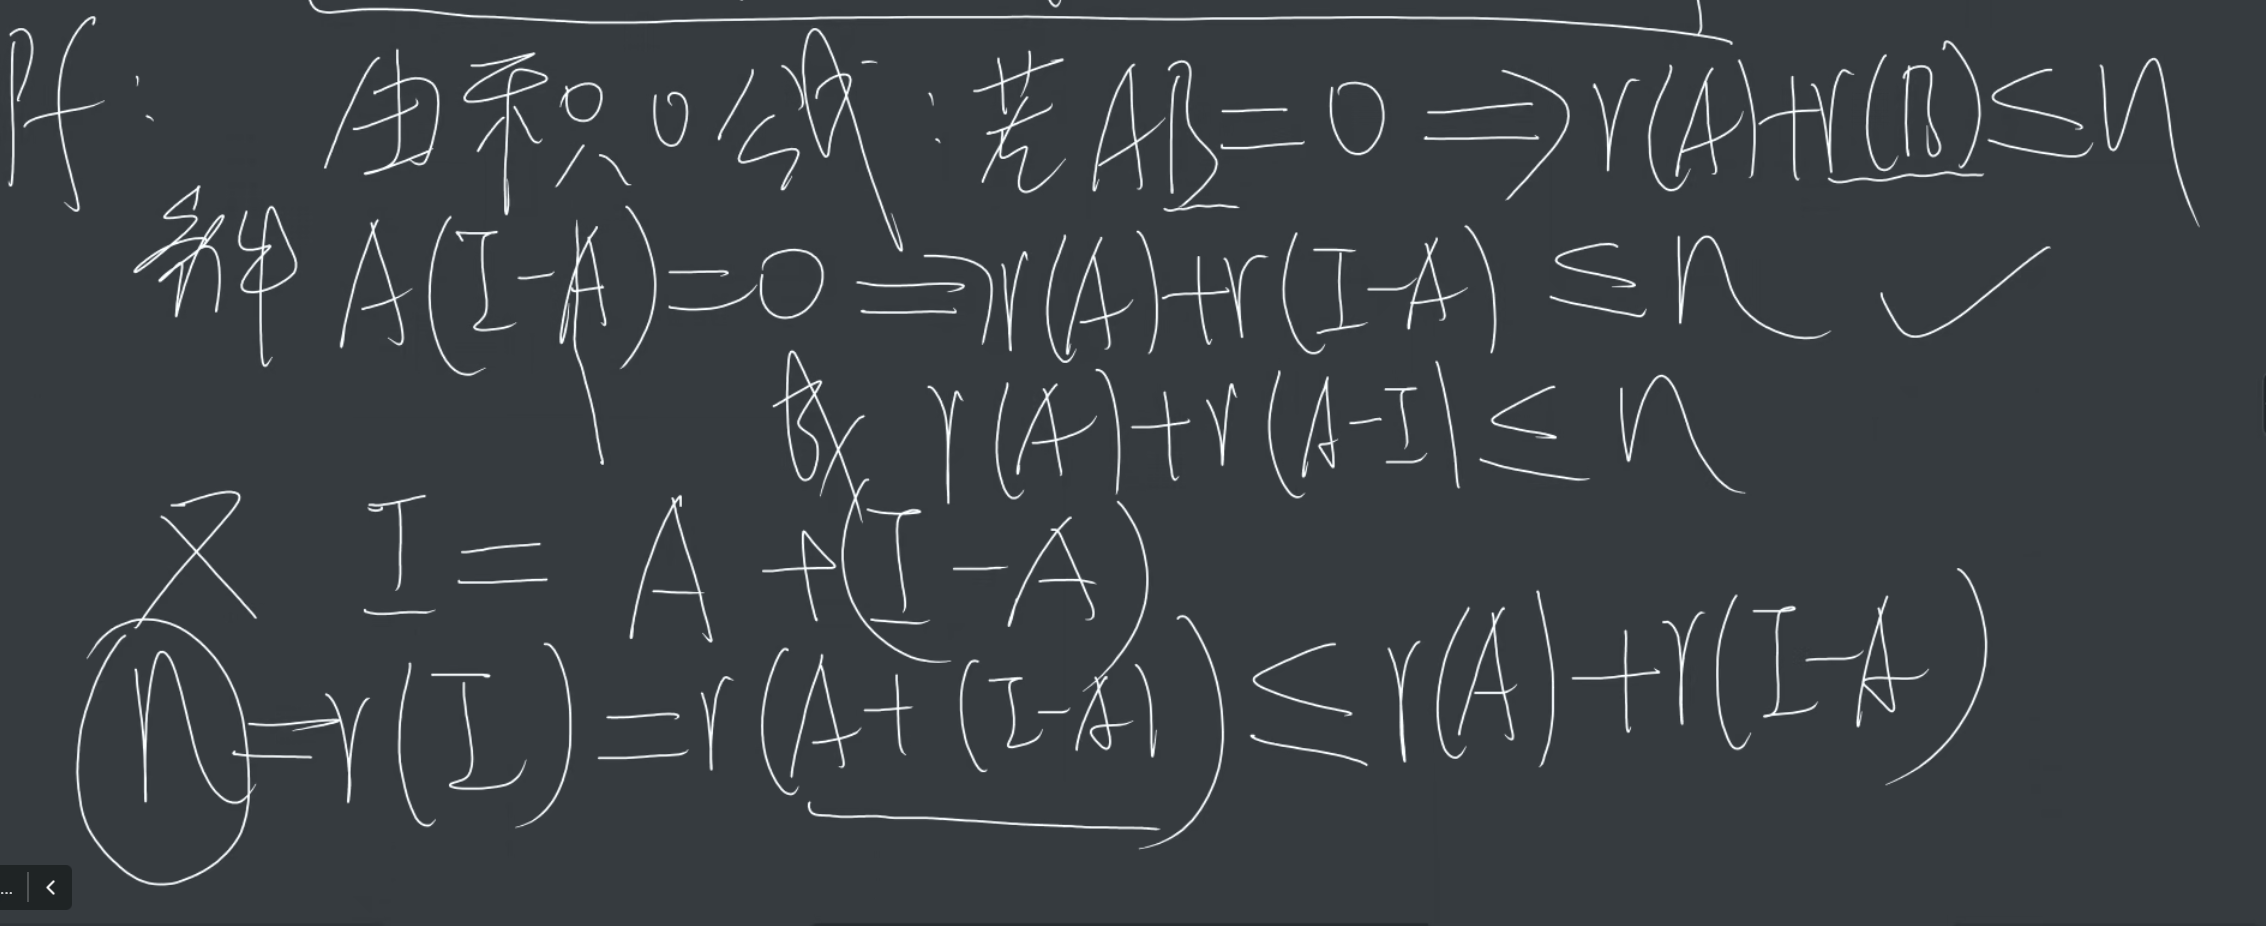 Pf: 由积0公式: 若 AB=0 ⟹ r(A)+r(B)≤n
条件 A(I-A)=0 ⟹ r(A)+r(I-A) ≤ n ✓
故 r(A)+r(A-I)≤n
又 I = A+(I-A)
n=r(I)=r(A+(I-A))≤r(A)+r(I-A)
... <